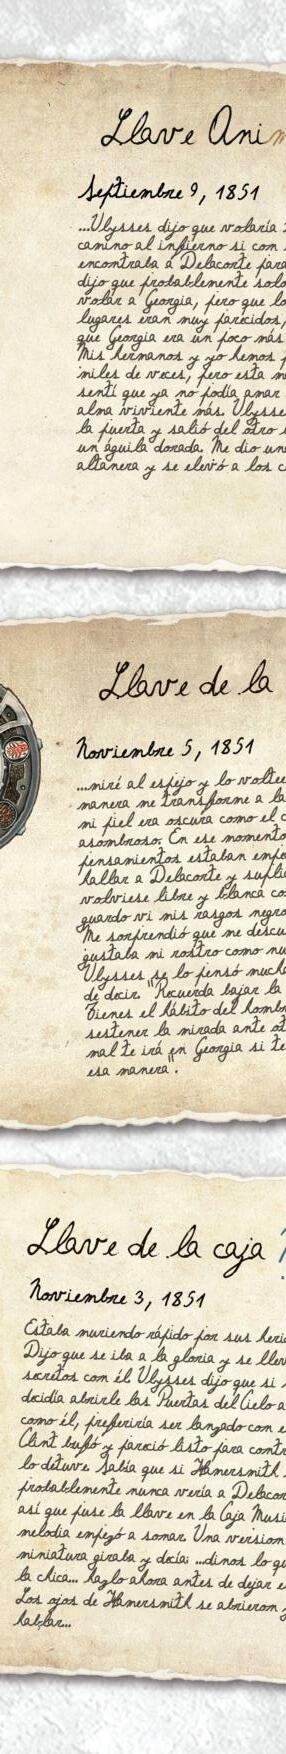 Llave Anim
Septiembre 9, 1851
...Ulysses dijo que volaría
camino al infierno si con
encontraba a Delacorte para
dijo que probablemente solo
volar a Georgia, pero que lo
lugares eran muy parecidos,
que Georgia era un poco más
Mis hermanos y yo hemos
miles de veces, pero esta
sentí que ya no podía amar
alma viviente más. Ulysse
la puerta y salió del otro
un águila dorada. Me dio un
altanera y se elevó a los c
Llave de la
Noviembre 5, 1851
...miré al espejo y lo voltee
manera me transforme a la
mi piel era oscura como el c
asombroso. En ese momento
pensamientos estaban empe
hallar a Delacorte y suplic
volviese libre y blanca co
cuando vi mis rasgos negro
Me sorprendió que me descu
gustaba mi rostro como nu
Ulysses se lo pensó much
de decir "Recuerda bajar la
Tienes el hábito del hombr
sestener la mirada ante ot
mal te irá en Georgia si te
esa manera".
Llave de la caja
Noviembre 3, 1851
Estaba muriendo rápido por sus heri
Dijo que se iba a la gloria y se llev
secretos con él Ulysses dijo que si
decidía abrirle las Puertas del Cielo a
como él, preferiría ser lanzado con e
Clint bufó y pareció listo para contr
lo detuve. Sabía que si Hamersmith
probablemente nunca vería a Delacor
así que puse la llave en la Caja Musi
melodia empezó a sonar. Una version
miniatura giraba y decía: ...dinos lo qu
la chica... hazlo ahora antes de dejar e
Los ojos de Hamersmith se abrieron y
hablar...